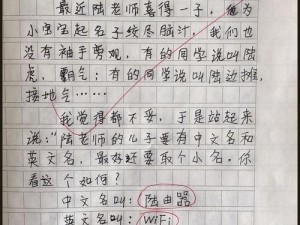 最近陆老师喜得一子，他为
小宝宝起名子绞尽脑汁，我们也
没有袖手旁观，有的同学说叫陆
虎，霸气；有的同学说叫陆边摊，
接地气……
我觉得都不妥，于是站起来
说：“陆老师的儿子要有中文名和
英文名，最好还要取个小名。你
看这个如何？
中文名叫：陆由器
英文名叫：WiFi